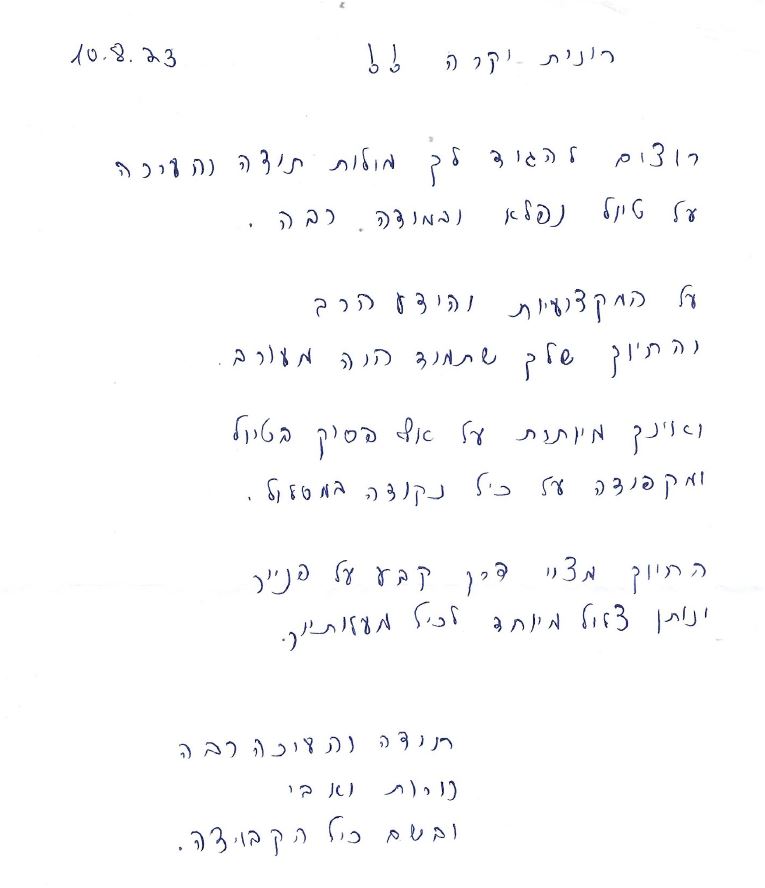 רונית יקרה !! 10.8.23
רוצים להגיד לך מילות תודה והערכה
על טיול נפלא ובמידה רבה.
על המקצועיות והידע הרב
והחיוך שלך שתמיד היה מעורב.
ואינך מוותרת על אף פסיק בטיול
ומקפידה על כיל נקודה במסלול.
החיוך מצוי דרך קבע על פנייך
ונותן צליל מיוחד לכיל מעלותיך.
תודה והערכה רבה
נורית ואבי
ובשם כיל הקבוצה.